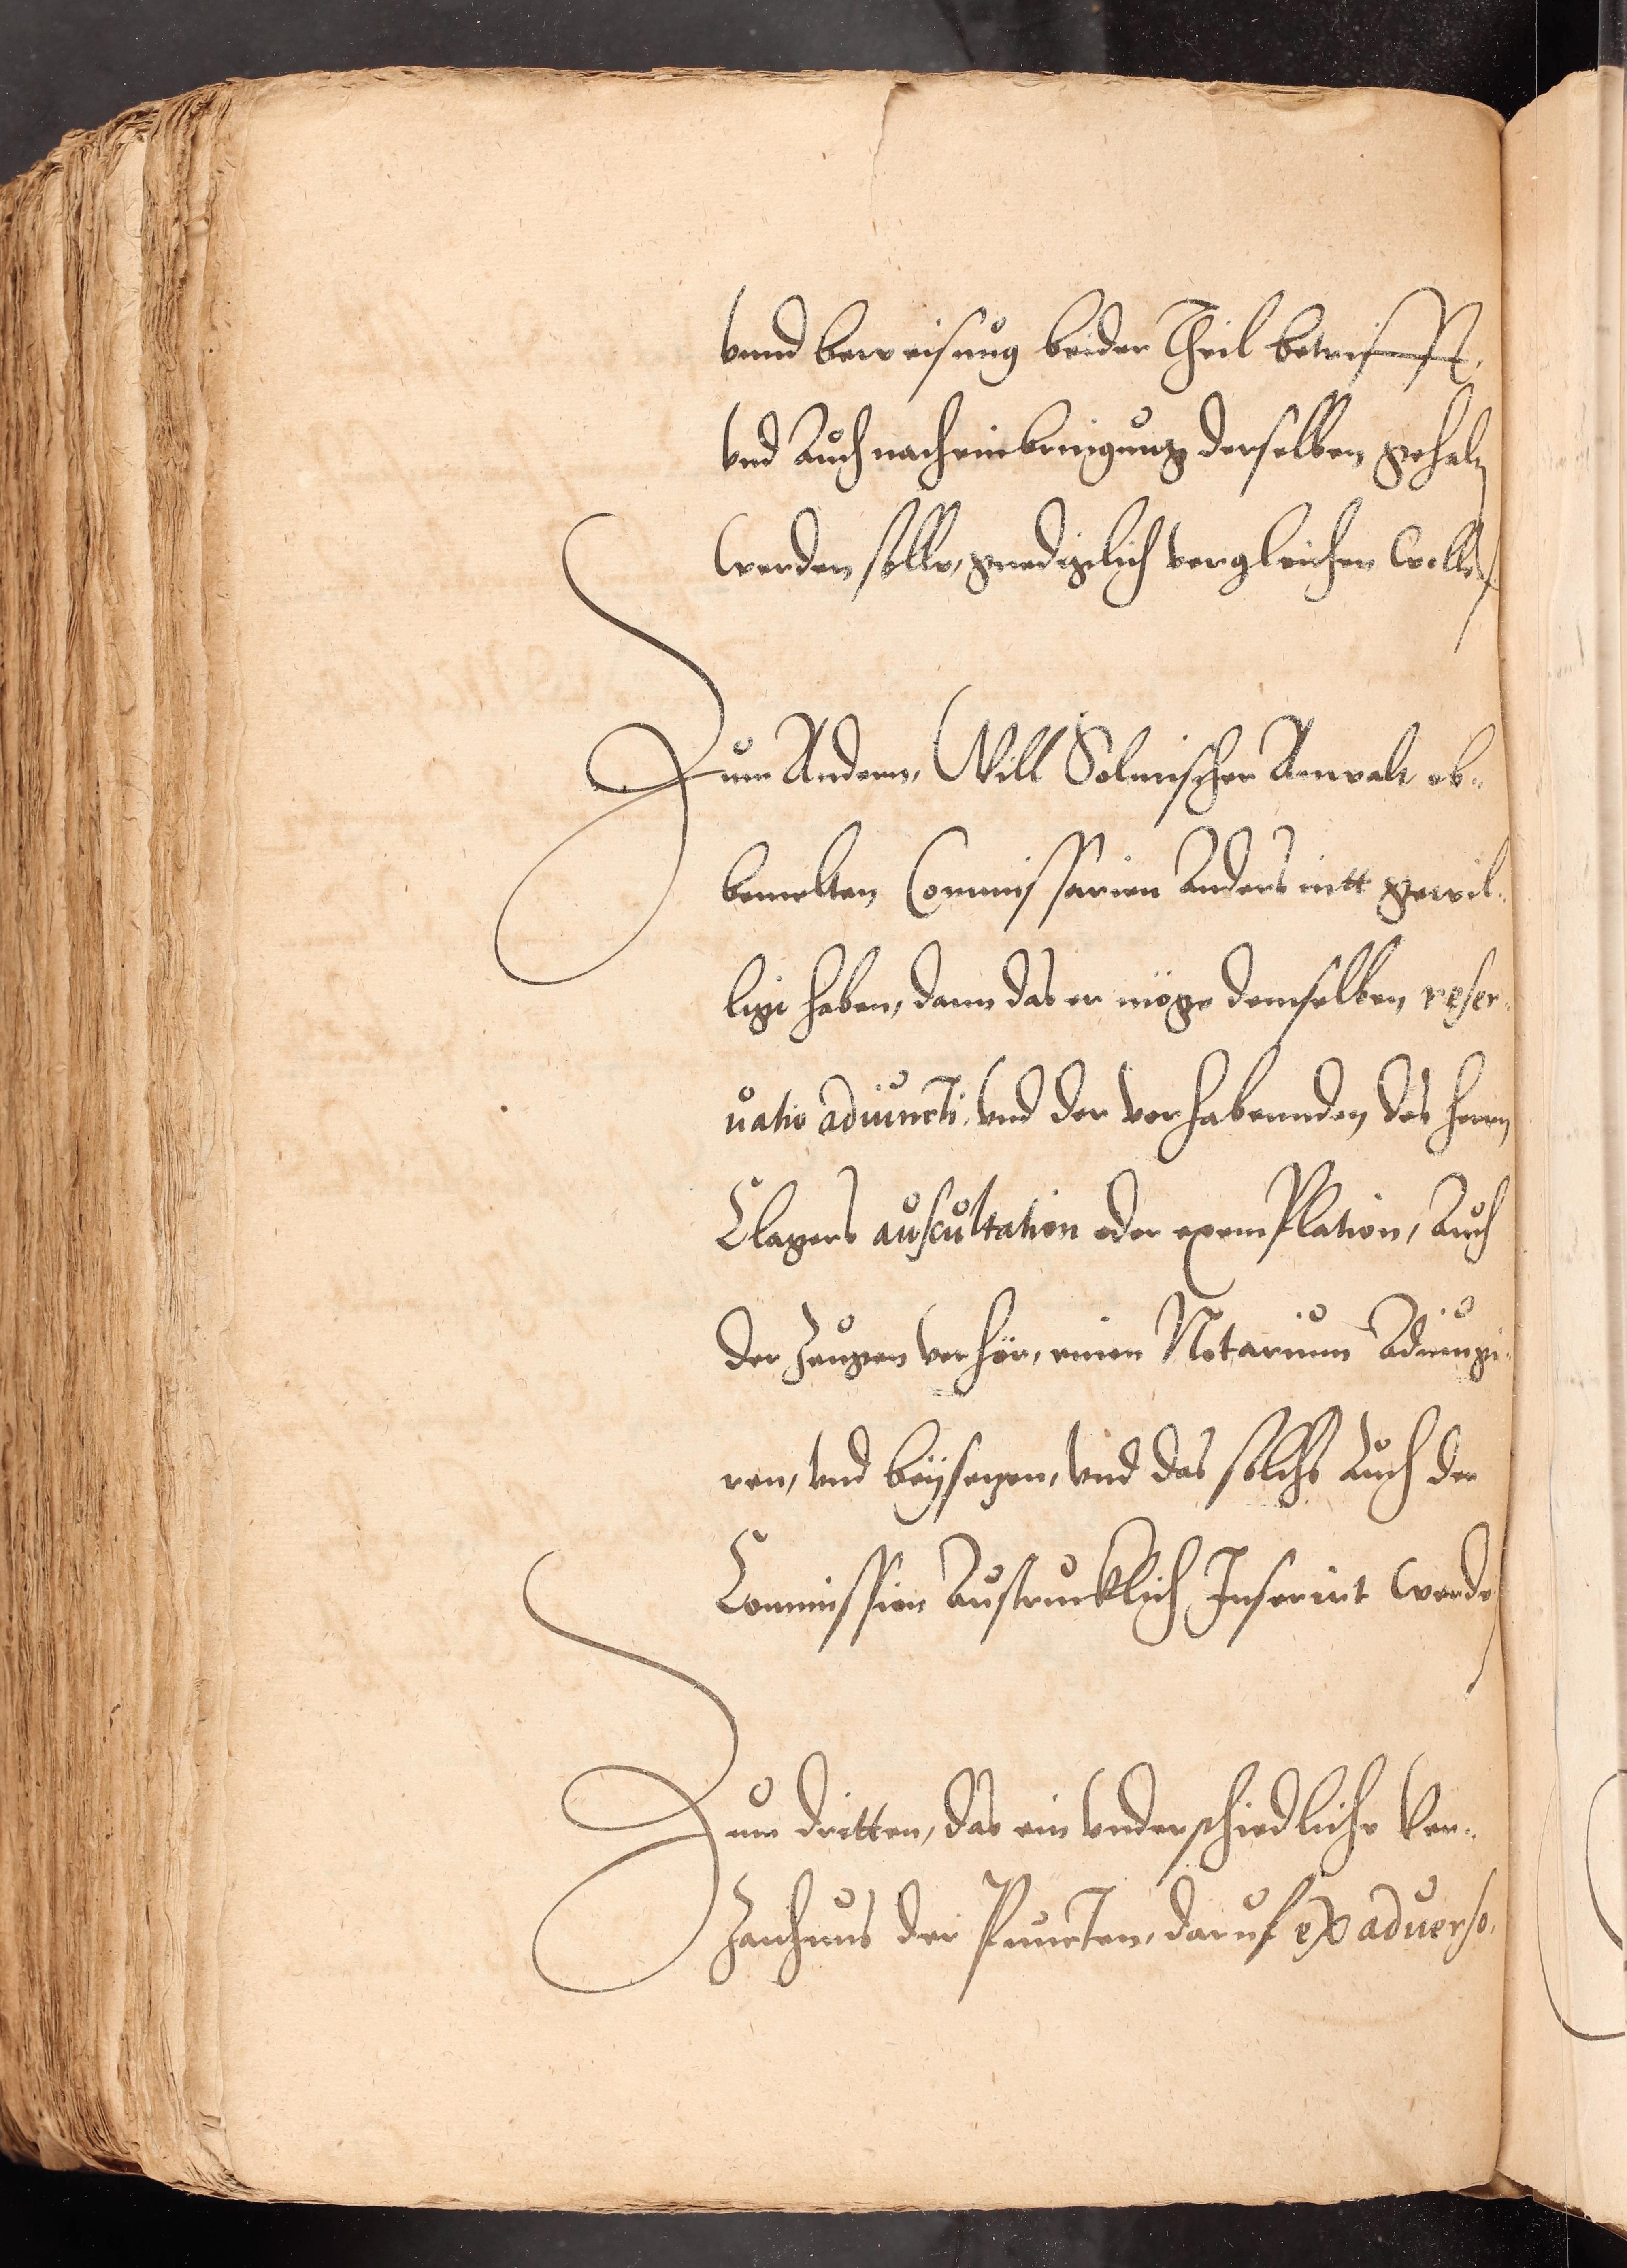 vnnd beweisung beider Theil betrifft,
vnd Auch nach einbringung derselben gehaltn
werden solle, gnediglich vergleichen wolle
Zum Andern, Will Solmischer Anwalt ob„
bemelten Commissarien Anders nitt gewil„
ligt haben, dann das er möge demselben reser„
uatio adiuncti vnd der vorhabennden des herrn
Clagers auscultation oder exemplation, Auch
der Zeugen verhör, einen Notarium Adiungi„
ren, vnd beÿsezen, vnd das solchs Auch der
Commission Austrucklich Inserirt werde
Zum dritten, das ein vnderschiedliche Ver„
Zaichnus der Puncten, daruf ex aduerso,